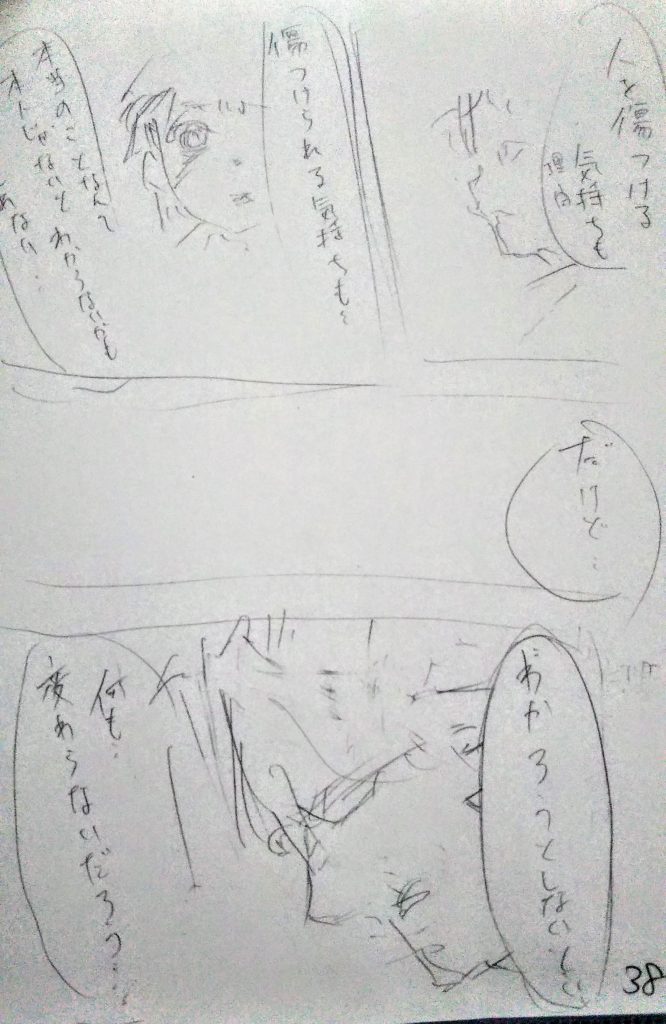 人を傷つける
気持ちも
理由
傷つけられる気持ちも…
本当のことなんて
オレじゃないとわからないかも
しれない…
だけど…
わかろうとしないと…
何も…
変わらないだろう…
38